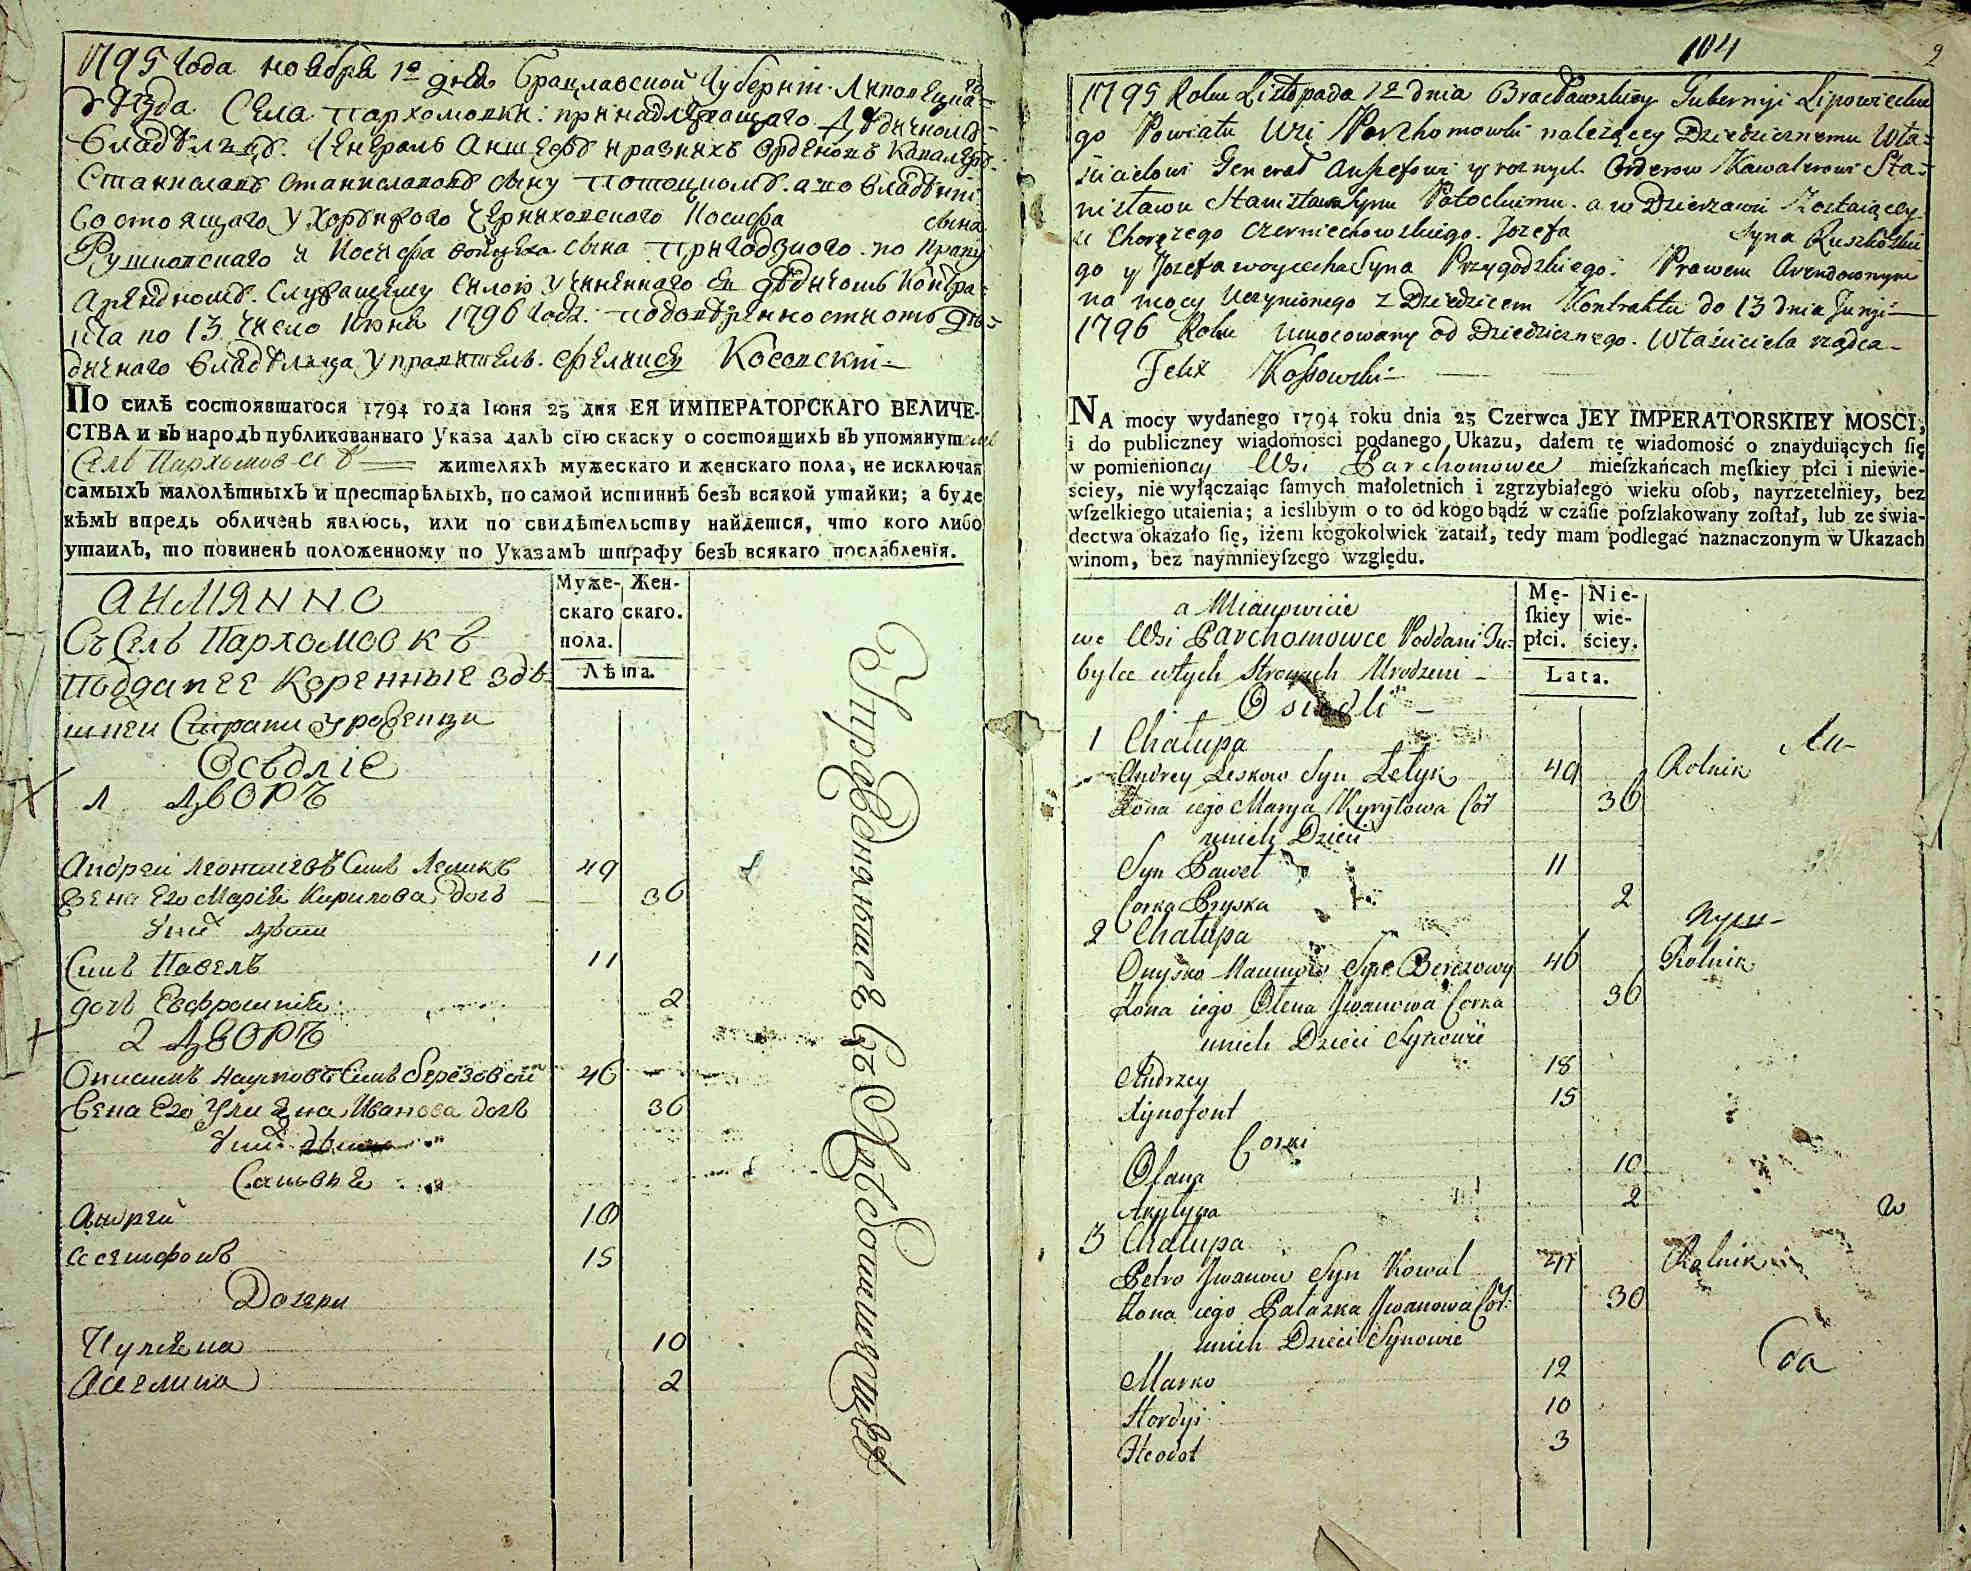 1795 Года ноября 12 дня Брацлавской Губернiи Липовецка-
го уѣзда Села Пархомовки: принадлежащаго дѣдичному
владѣлцу Генералъ Аншефу и разныхъ Орденовъ Кавалеру
Станиславу Станиславову сыну Потоцкому. а во владѣнiи
состоящаго у Хорунжого Черниховского Иосифа сына
Рушковскаго и Иосифа Войцеха сына Пригодзкого по праву
Арендному. Служащему силою учиненнаго съ дѣдичомъ Контра-
кта по 13 число июня 1796 Года: по довѣренности отъ дѣ-
дичнаго владѣльца управитель. Феликсъ Косовскiй
ПО силѣ состоявшагося 1794 года Iюня 25 дня ЕЯ ИМПЕРАТОРСКАГО ВЕЛИЧЕ-
СТВА и въ народъ публикованнаго Указа далъ сiю скаску о состоящихъ въ упомянутомъ
Селѣ Пархомовкѣ жителяхъ мужескаго и женскаго пола, не исключая
самыхъ малолѣтныхъ и престарѣлыхъ, по самой истиннѣ безъ всякой утайки; а буде
кѣмъ впредь обличенъ явлюсь, или по свидѣтельству найдется, что кого либо
утаилъ, то повиненъ положенному по Указамъ штрафу безъ всякаго послабленiя.
Муже- Жен-
скаго скаго.
пола.
Лѣта.
а имянно
Въ Селѣ Пархомовкѣ
Подданее Коренные здѣ-
шнеи Страни уроженци
Осѣдлiе
1 дворъ
Андрей Леонтиевъ Синъ Летикъ 49
жена Его Марiя Кирилова дочь 36
Унихъ дѣти
Синъ Павелъ 11
дочь Евфросинiя 2
2 дворъ
Онисимъ Наумовъ Синъ Березовой 46
жена Его Улияна Иванова дочь 36
Унихъ
Синовья
Андрей 18
Ксенофонъ 15
Дочери
Иулияна 10
Акилина 2
Упрѣвеняющiе
104
2
1795 Roku Listopada 12 dnia Bracławskiey Gubernyi Lipowieckie
go Powiatu Wsi Parchomowki należącey Dziedzicznemu Wła-
ścicielowi Generał Anszefowi y roznych Orderow Kawalerowi Sta-
nisławu Stanisława Synu Potockiemu. a w Dzierżawie Zostaiącey
u Chorążego Czerniechowskiego. Jozefa Syna Ruszkowskie
go y Jozefa Woyciecha Syna Przygodzkiego. Prawem Arendownym
na mocy Uczynionego z Dziedzicem Kontraktu do 13 dnia Junyi
1796 Roku Umocowany od Dziedzicznego Właściciela rządca
Felix Kossowski
NA mocy wydanego 1794 roku dnia 25 Czerwca JEY IMPERATORSKIEY MOSCI,
i do publiczney wiadomości podanego Ukazu, dałem tę wiadomość o znayduiących się
w pomienioney Wsi Parchomowce mieſzkańcach męſkiey płci i niewie-
ściey, nie wyłączaiąc ſamych małoletnich i zgrzybiałego wieku oſob, nayrzetelniey, bez
wſzelkiego utaienia; a ieślibym o to od kogo bądź w czaſie poſzlakowany zoſtał, lub ze świa-
dectwa okazało ſię, iżem kogokolwiek zataił, tedy mam podlegać naznaczonym w Ukazach
winom, bez naymnieyſzego względu.
Mę- Nie-
ſkiey wie-
płci. ściey.
Lata.
a Mianowicie
we Wsi Parchomowce Poddani Tu-
bylce wtych Stronach Urodzeni
Osiedli
1 Chałupa
Andrey Leskow Syn Letyk 49 Rolnik
Żona iego Marya Kyryłowa Cór 36
unich Dzieci
Syn Paweł 11
Corka Pryska 2
2 Chałupa
Onysko Naumow Syn Berezowy 46 Rolnik
Żona iego Olena Jwanowa Corka 36
unich Dzieci Synowie
Andrzey 18
Xynofont 15
Corki
Olana 10
Akylyna 2
3 Chałupa
Petro Jwanow Syn Kowal 41 Rolnik
Żona iego Pałazka Jwanowa Cór: 30
unich Dzieci Synowie
Marko 12
Hordyi 10
Fteodot 3